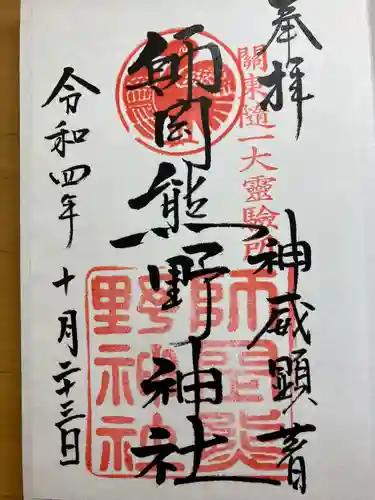 奉拝
關東隨一大靈驗所
神威顕著
師岡熊野神社
師岡熊野神社
令和四年十月二十三日